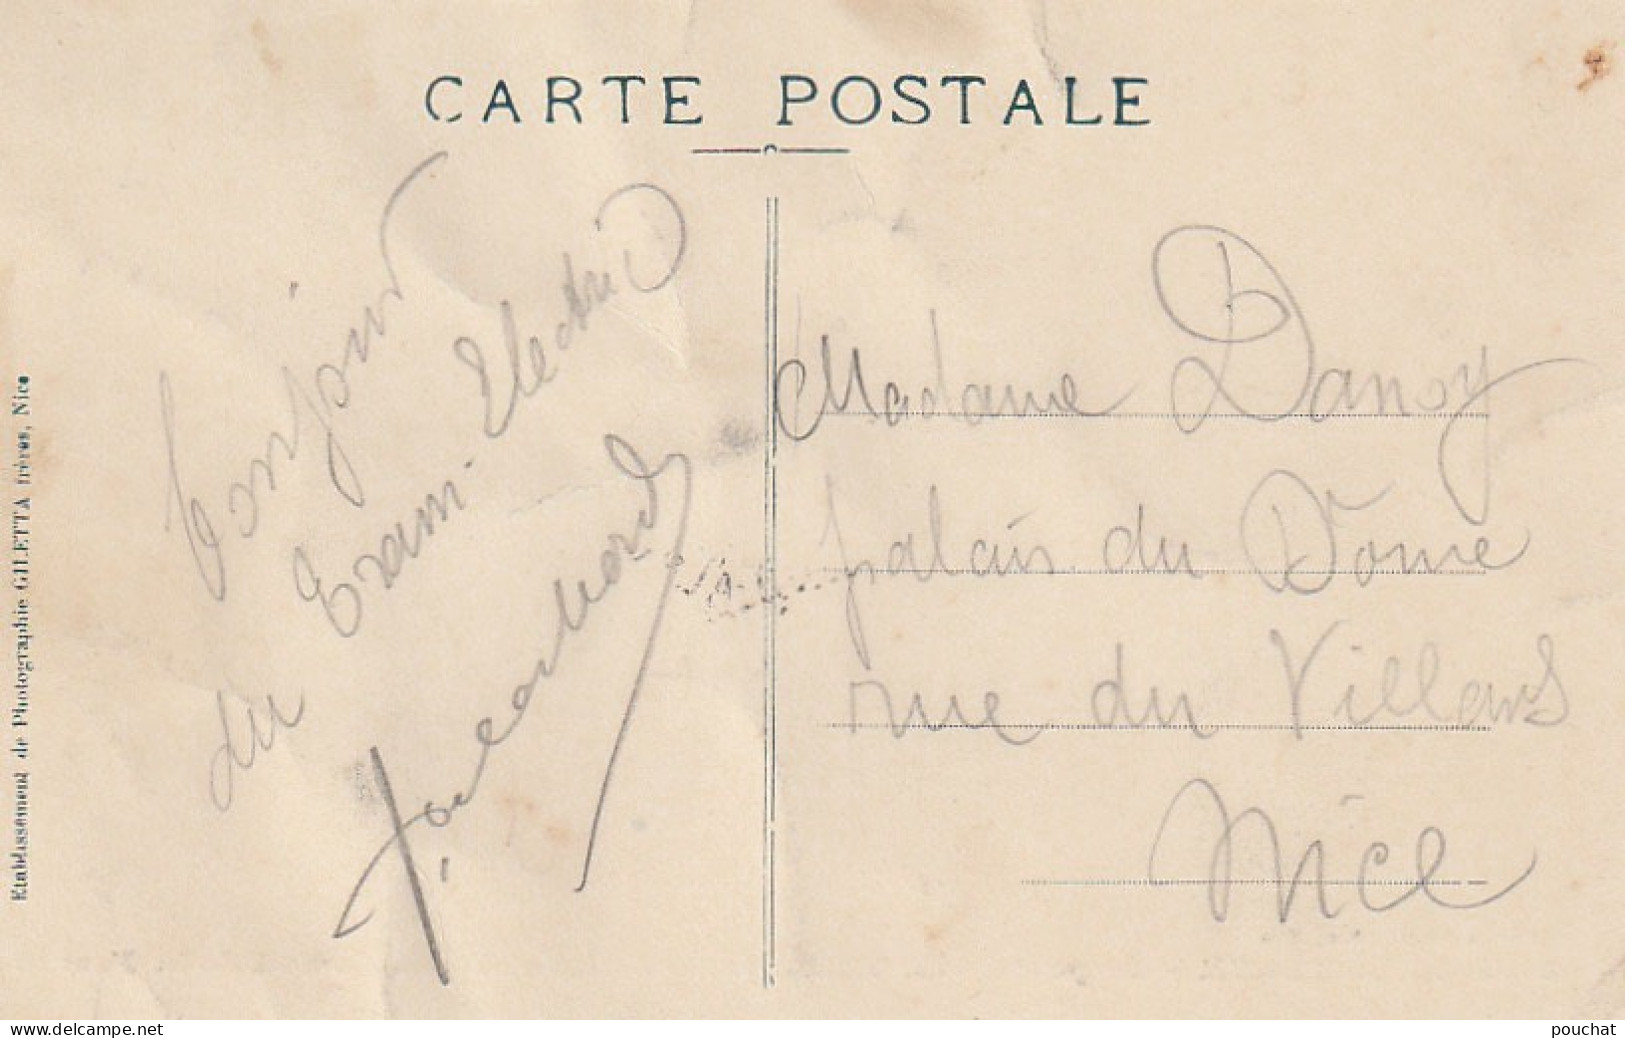 CARTE POSTALE
bonjour
du Tram-Electric
Madame Danoy
palais du Dome
rue du Villars
Nice
Etablissement de Photographie GILETTA frères, Nice
www.delcampe.net
pouchat